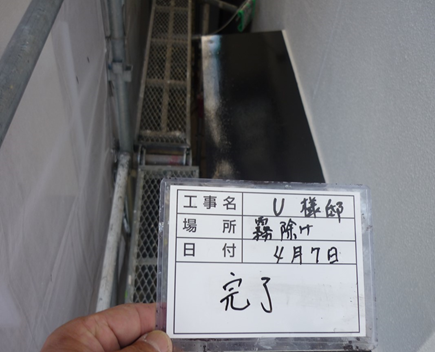 工事名 U様邸
場所 霧除け
日付 4月7日
完了